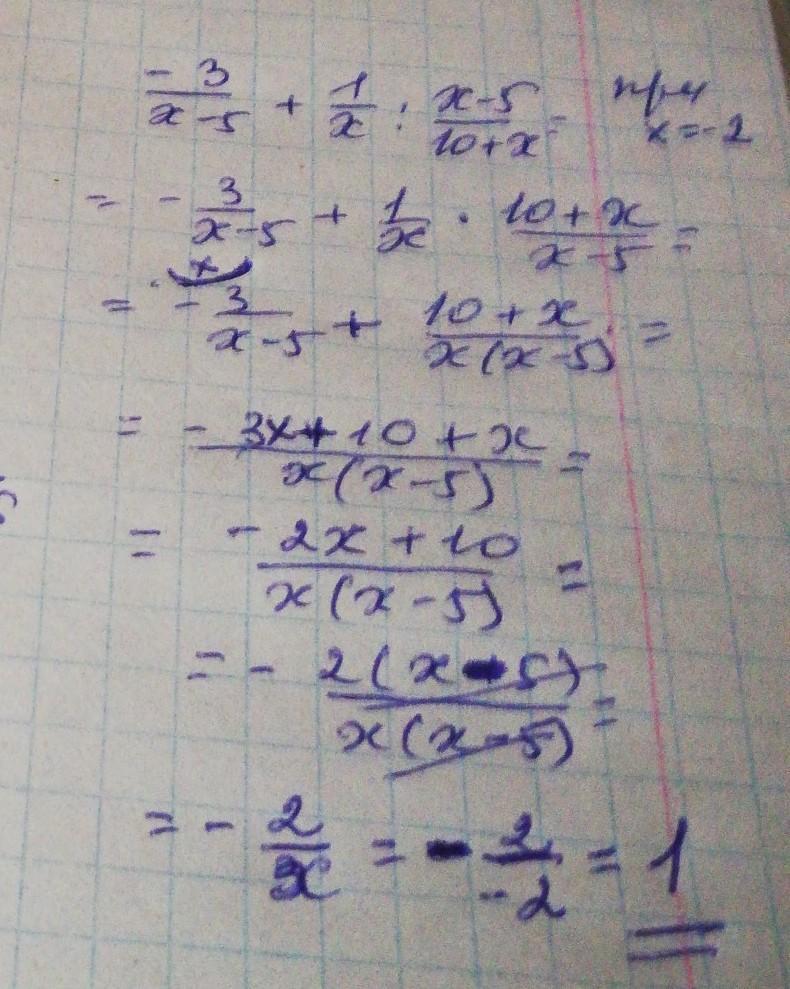 -3/(x-5) + 1/x : (x-5)/(10+x) = при x=-2
= - 3/(x-5) + 1/x · (10+x)/(x-5) =
= - 3/(x-5) + (10+x)/(x(x-5)) =
= (-3x+10+x)/(x(x-5)) =
= (-2x+10)/(x(x-5)) =
= - 2(x-5)/(x(x-5)) =
= - 2/x = - 2/-2 = 1